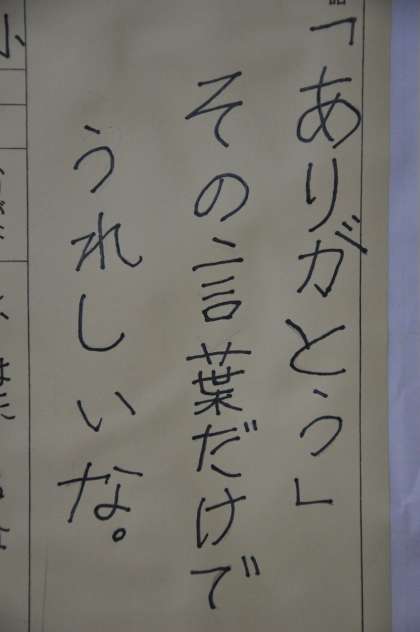 「ありがとう」
その言葉だけで
うれしいな。